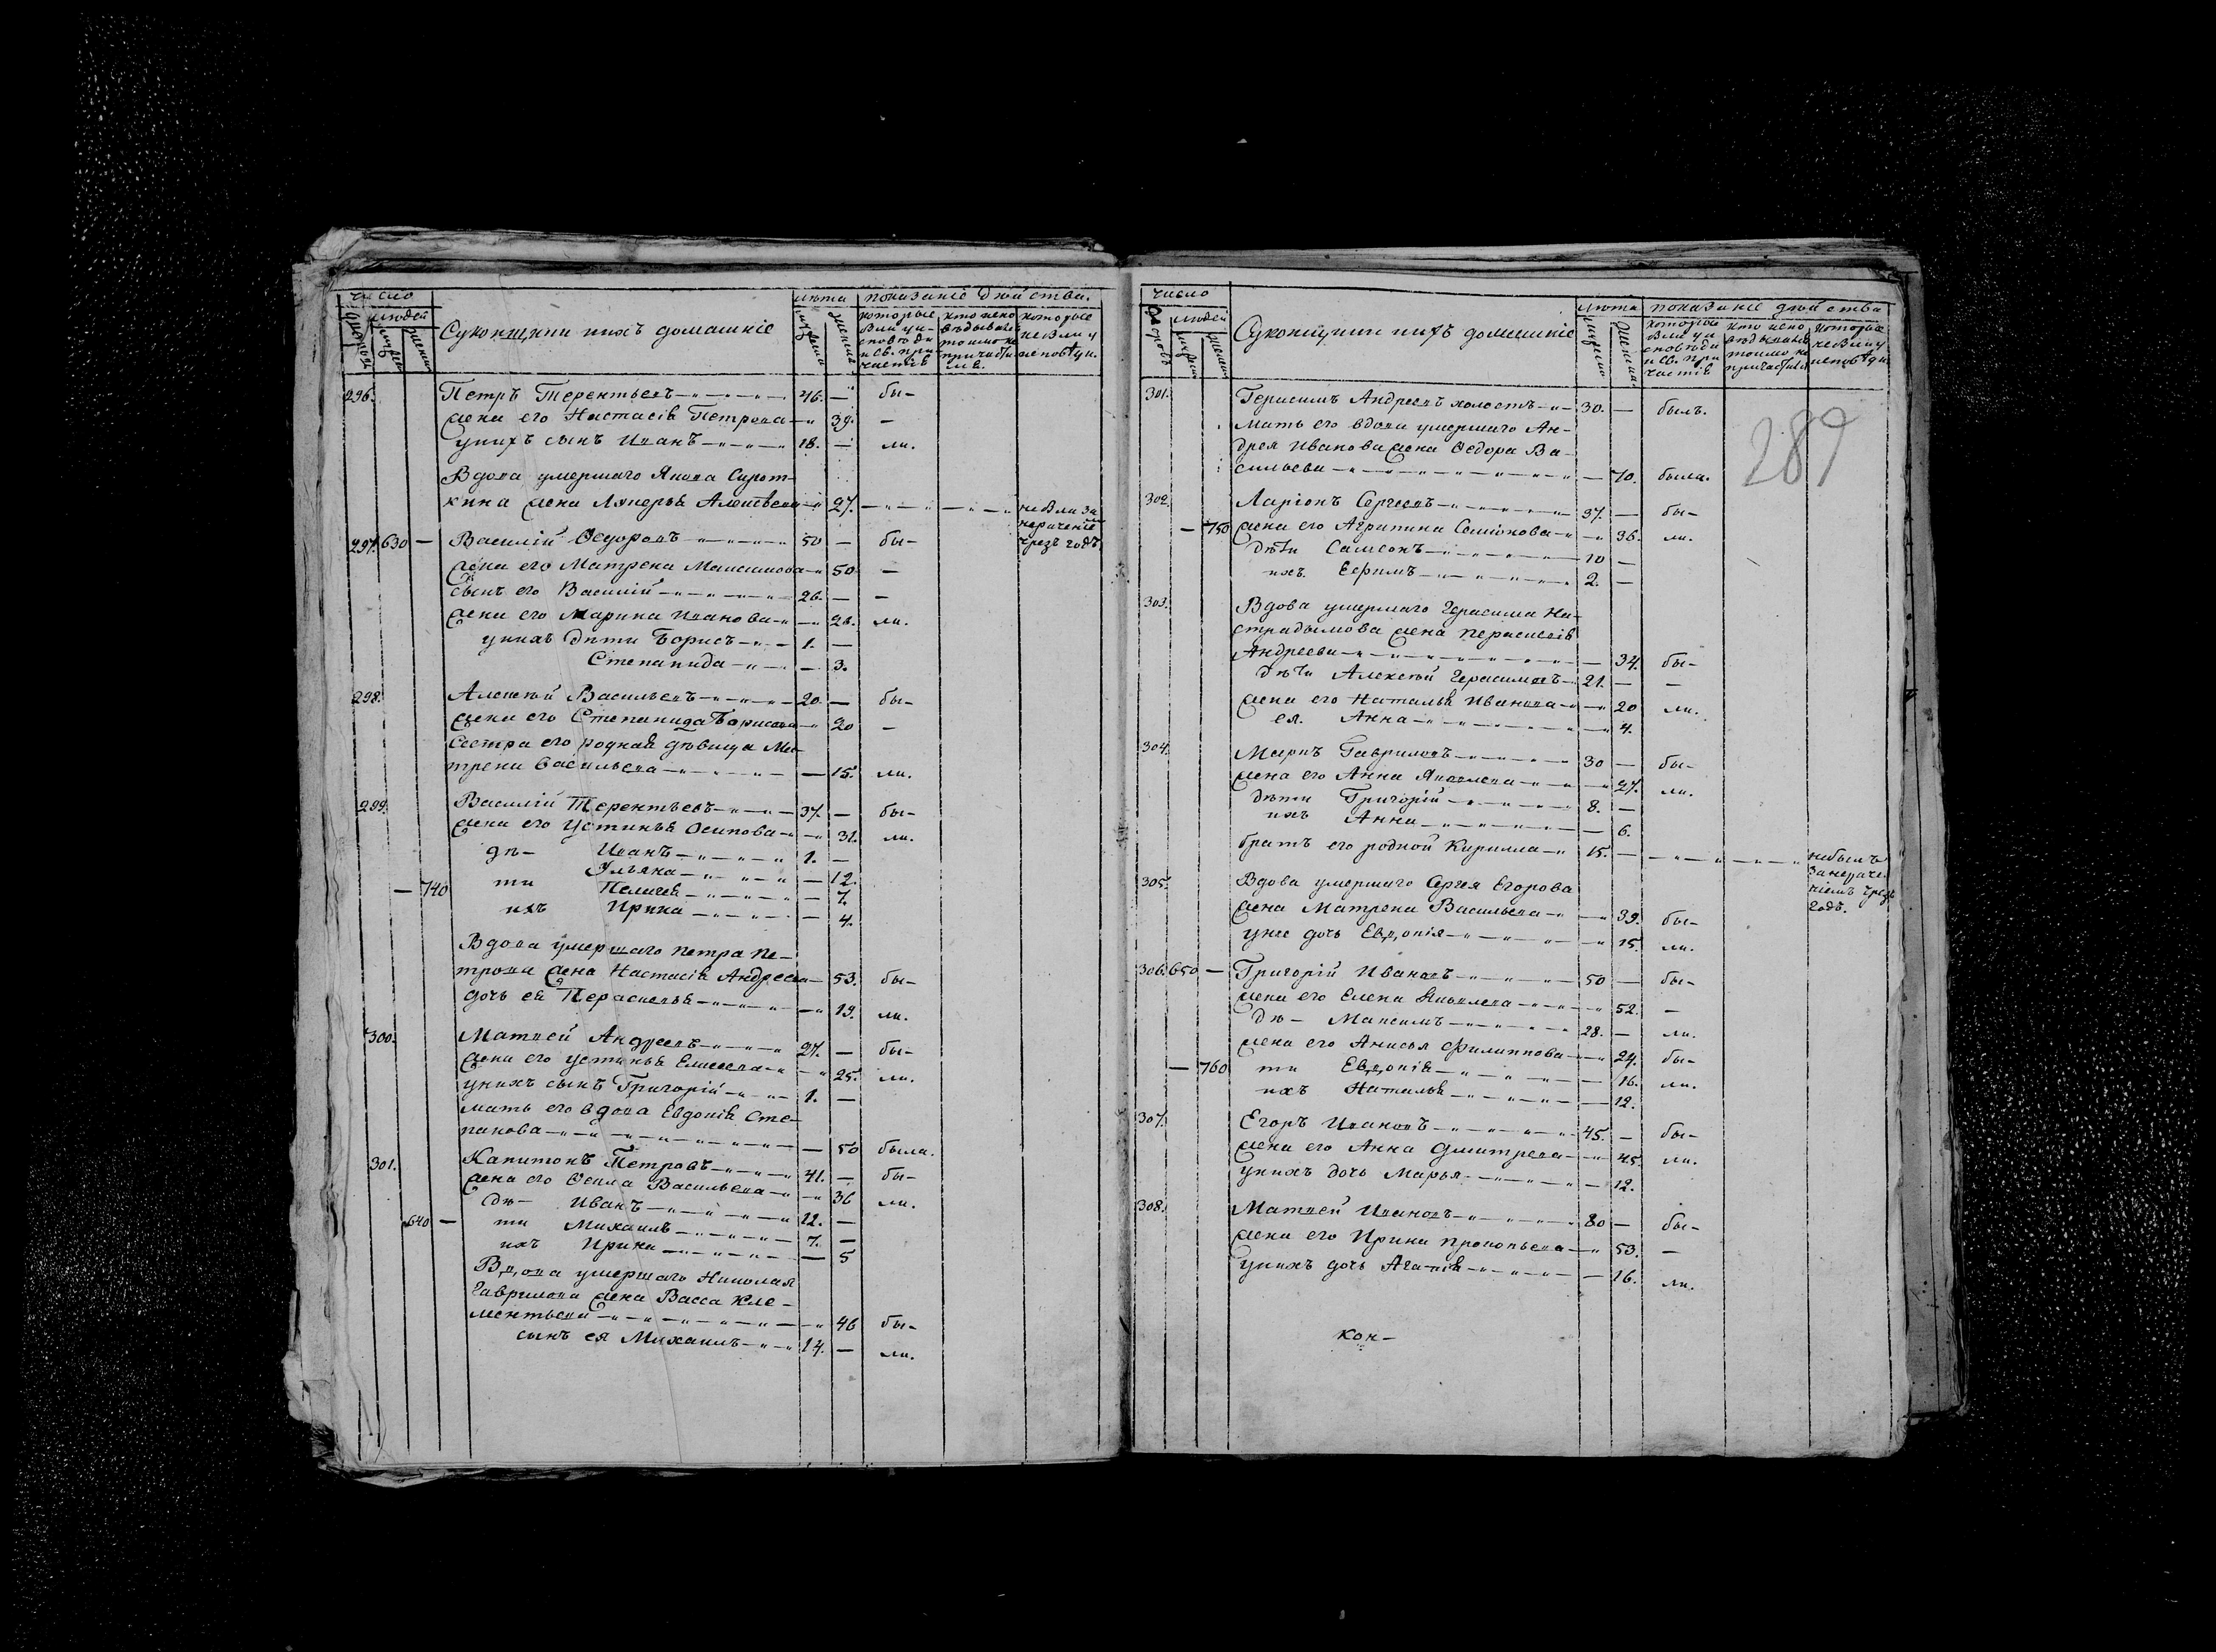 число
людей
лѣта
показаніе дѣйства.
дворовъ
мужеска
женска
Суконщики и ихъ домашніе
мужеска
женска
которые были у исповѣди и св. причастія
кто исповѣдывался токмо не причастился
которые не были у исповѣди.
296. Петръ Терентьевъ 46. — бы-
жена его Настасія Петрова 39. —
у нихъ сынъ Иванъ 18. — ли.
Вдова умершаго Якова Сирот-
кина жена Лукерья Алексѣева 27. не была за
нераченіемъ
чрезъ годъ.
297. 630 — Василій Ѳедоровъ 50 — бы-
жена его Матрена Максимова 50 —
сынъ его Василій 26. — —
жена его Марина Иванова 28. ли.
у нихъ дѣти Борисъ 1. —
Степанида — 3.
298. Алексѣй Васильевъ 20. — бы-
жена его Степанида Борисова 20 —
Сестра его родная дѣвица Ма-
трена Васильева — 15. ли.
299. Василій Терентьевъ 37. — бы-
жена его Устинья Осипова 31. ли.
дѣ- Иванъ 1. —
Ульяна — 12.
— 740 ти Пелагея — 7.
ихъ Ирина — 4.
Вдова умершаго Петра Пе-
трова жена Настасія Андреева 53. бы-
дочь ея Параскевья 19. ли.
300. Матвей Андреевъ 27. — бы-
жена его Устинья Елисеева 25. ли.
у нихъ сынъ Григорій 1. —
мать его вдова Евдокія Сте-
панова — 50 была.
301. Капитонъ Петровъ 41. — бы-
жена его Ѳекла Васильева 36 ли.
дѣ- Иванъ 12. —
640 — ти Михаилъ 7. —
ихъ Ирина — 5
Вдова умершаго Николая
Гаврилова жена Васса Кле-
ментьева 46 бы-
сынъ ея Михаилъ 14. — ли.
число
людей
лѣта
показаніе дѣйства
дворовъ
мужеска
женска
Суконщики и ихъ домашніе
мужеска
женска
которые были у исповѣди и св. причастія
кто исповѣдывался токмо не причастился
которые не были у исповѣди.
289
301. Герасимъ Андреевъ холостъ 30. — былъ.
мать его вдова умершаго Ан-
дрея Иванова жена Ѳедора Ва-
сильева — 70. была.
302. Ларіонъ Сергеевъ 37. — бы-
— 750 жена его Агрипина Семіонова 36. ли.
дѣти Самсонъ 10 —
ихъ. Ефримъ 2. —
303. Вдова умершаго Герасима На-
страдымова жена Параскевія
Андреева — 34. бы-
дѣти Алексѣй Герасимовъ 21. — —
жена его Наталья Иванова 20 ли.
ея. Анна 4.
304. Маркъ Гавриловъ 30 — бы-
жена его Анна Яковлева 27. ли.
дѣти Григорій 8. —
ихъ Анна — 6.
братъ его родной Кирилла 15. — не былъ
за нераче-
ніемъ чрезъ
годъ.
305. Вдова умершаго Сергея Егорова
жена Матрена Васильева 39. бы-
у нее дочь Евдокія 15. ли.
306. 650 — Григорій Ивановъ 50 — бы-
жена его Елена Яковлева 52. —
дѣ- Максимъ 28. — ли.
жена его Анисья Филиппова 24. бы-
— 760 ти Евдокія — 16. ли.
ихъ Наталья — 12.
307. Егоръ Ивановъ 45. — бы-
жена его Анна Дмитрева 45. ли.
у нихъ дочь Марья — 12.
308. Матвей Ивановъ 80 — бы-
жена его Ирина Прокопьева 53. —
у нихъ дочь Агапія — 16. ли.
кон-